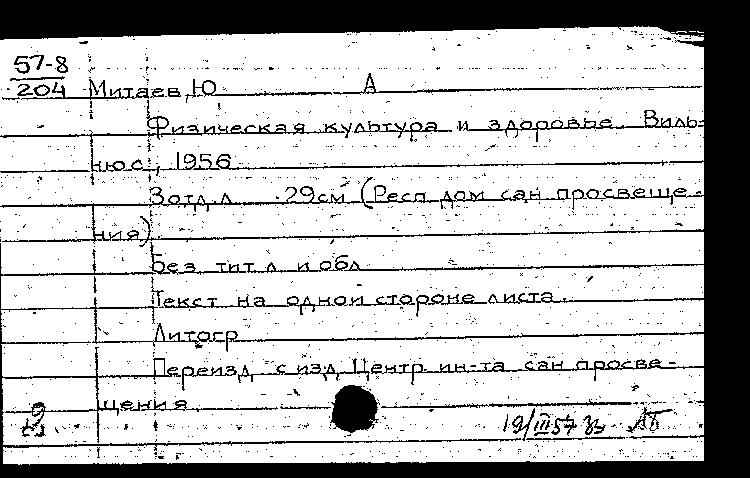 57-8
204 Митаев, Ю А
Физическая культура и здоровье. Виль-
нюс, 1956
3 отд. л. 29 см (Респ. дом сан. просвеще-
ния)
Без тит. л. и обл.
Текст на одной стороне листа.
Литогр
Переизд. с изд. Центр. ин-та сан. просве-
щения
19/III 57